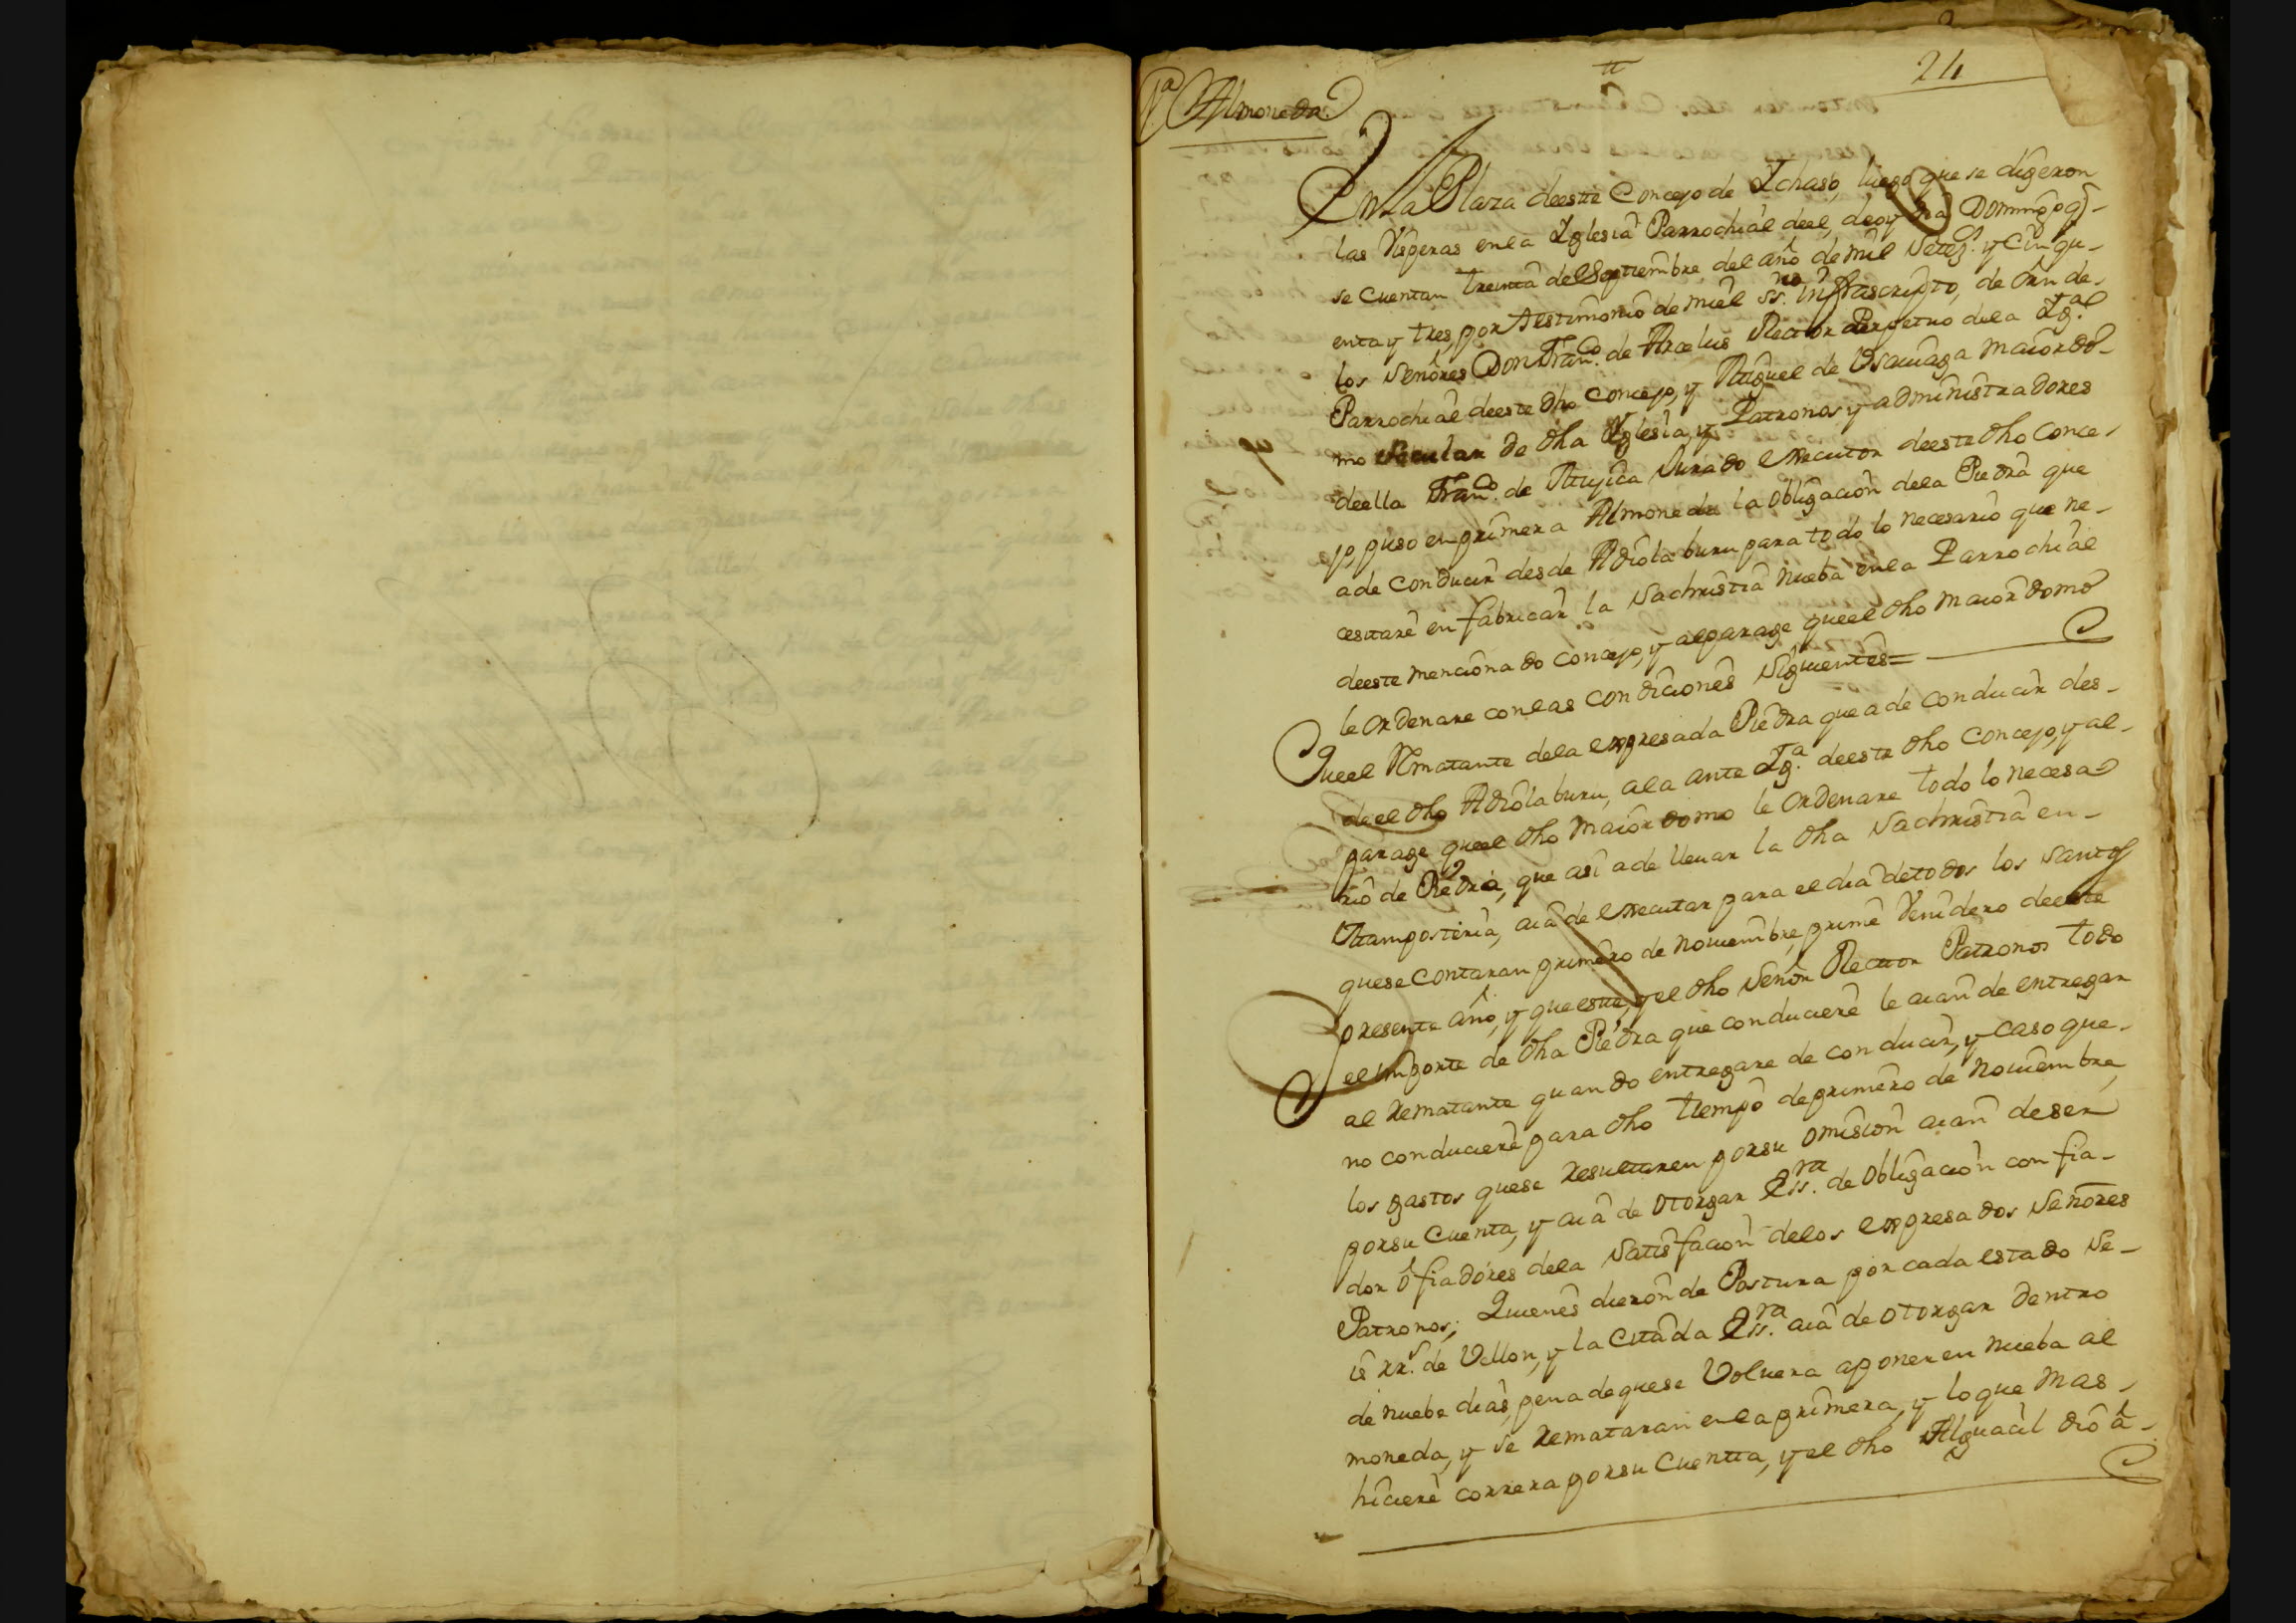 24
1ª Almoneda
En la Plaza deeste Concejo de Ichaso, luego que se digeron
las Visperas en la Iglesia Parrochial deel, deoy dia Domingo q̃
se cuentan treinta de Septiembre del año de mil setez.s y cinqu-
enta y tres, por testimonio de mi el ss.no infrascripto, de orn de
los señores Don Fran.co de Arcelus Rector perpetuo dela Ig.ª
Parrochial deeste dho Concejo, y Miguel de Vsauiaga maiordo-
mo secular de dha Iglesia, y Patronos y administradores
deella Fran.co de Mujica Jurado executor deeste dho conce-
jo, puso en primera Almoneda la obligacion dela Piedra que
a de conducir desde Adiolaburu para todo lo necesario que ne-
cesitare en fabricar la sachristia nueba en la Parrochial
deeste mencionado concejo, y al parage que el dho maiordomo
le ordenare con las condiciones siguientes=
Que el Rmatante dela expresada Piedra que a de conducir des-
de el dho Adiolaburu, ala ante Ig.ª deeste dho concejo, y al
parage que el dho maiordomo le ordenare todo lo necesa
rio de Piedra, que asi a de lleuar la dha sachristia en
Mamposteria, aia de executar para el dia de todos los santos
que se contaran primero de nouiembre, prime Venidero deeste
presente año, y que este, y el dho señor Rector Patronos todo
el importe de dha Piedra que conduciere le aian de entregar
al rematante quando entregare de conducir, y caso que
no conduciere para dho tiempo de primero de nouiembre,
los gastos que se resultaren por su omision aian de ser
por su cuenta, y aia de otorgar Ess.ra de obligacion con fia-
dor ô fiadores dela satisfacion delos expresados señores
Patronos; Quienes dieron de Postura por cada estado se-
is rr.s de Vellon, y la citada Ess.ra aia de otorgar dentro
de nuebe dias, pena de que se Voluera a poner en nueba al
moneda, y se remataran en la primera, y lo que mas
hiciere correra por su cuenta, y el dho Alguacil dio a-